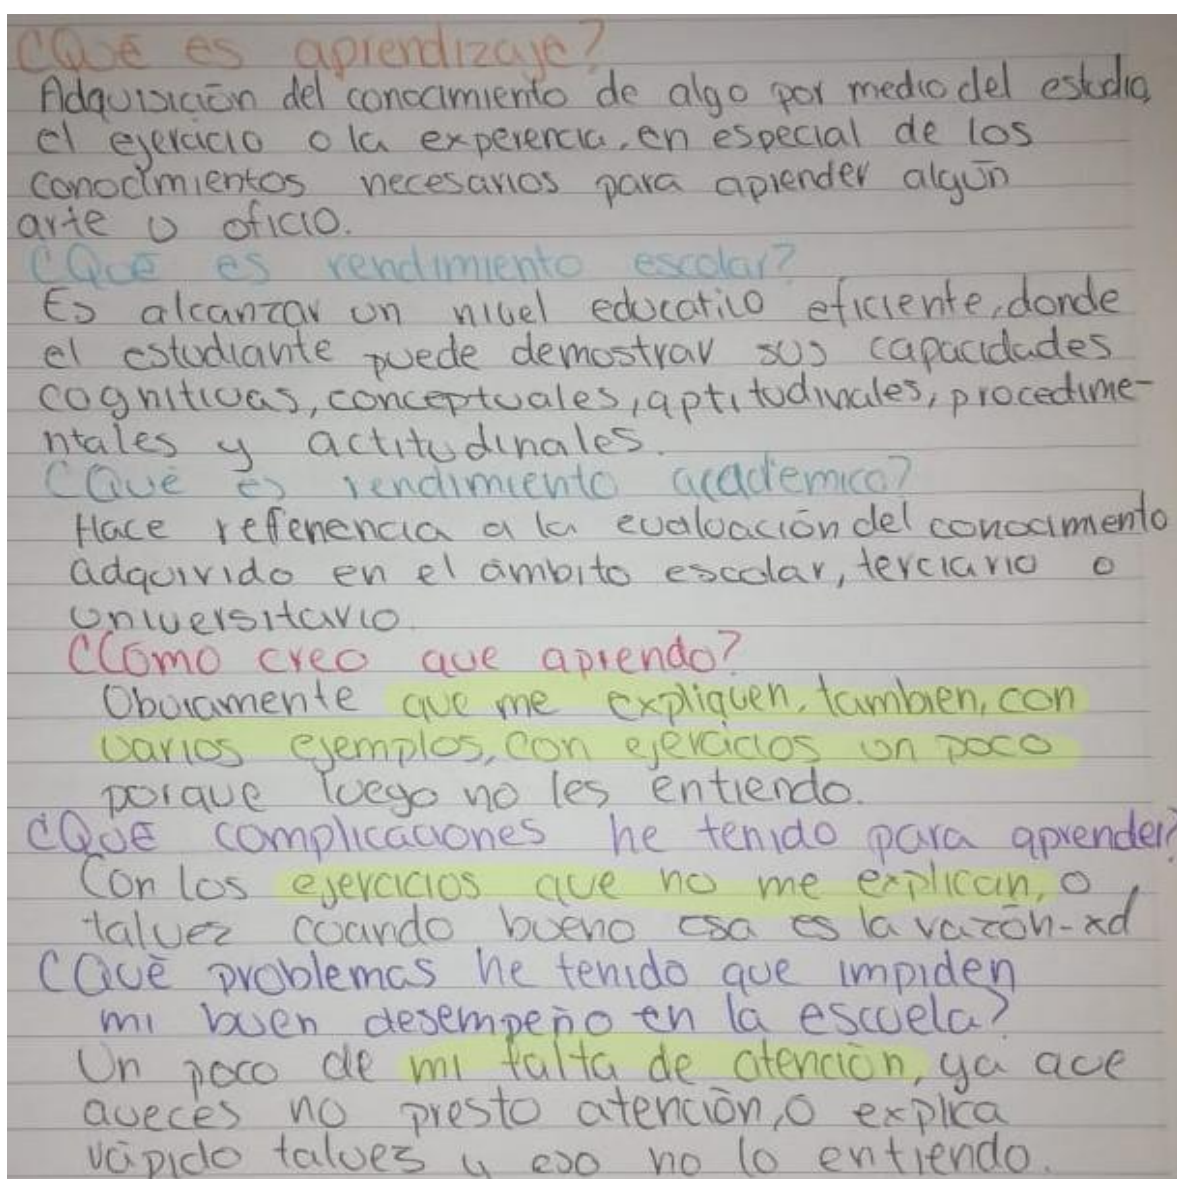 ¿Qué es aprendizaje?
Adquisición del conocimiento de algo por medio del estudio,
el ejercicio o la experencia, en especial de los
conocimientos necesarios para aprender algún
arte u oficio.
¿Qué es rendimiento escolar?
Es alcanzar un nivel educativo eficiente, donde
el estudiante puede demostrar sus capacidades
cognitivas, conceptuales, aptitudinales, procedime-
ntales y actitudinales.
¿Qué es rendimiento academico?
Hace refenencia a la evaluación del conocimento
adquirido en el ámbito escolar, terciario o
universitario.
¿Cómo creo que aprendo?
Obviamente que me expliquen, tambien, con
varios ejemplos, con ejercicios un poco
porque luego no les entiendo.
¿Qué complicaciones he tenido para aprender?
Con los ejercicios que no me explican, o,
talvez cuando bueno esa es la razón-xd
¿Qué problemas he tenido que impiden
mi buen desempeño en la escuela?
Un poco de mi falta de atención, ya que
aveces no presto atención, o explica
rápido talvez y eso no lo entiendo.